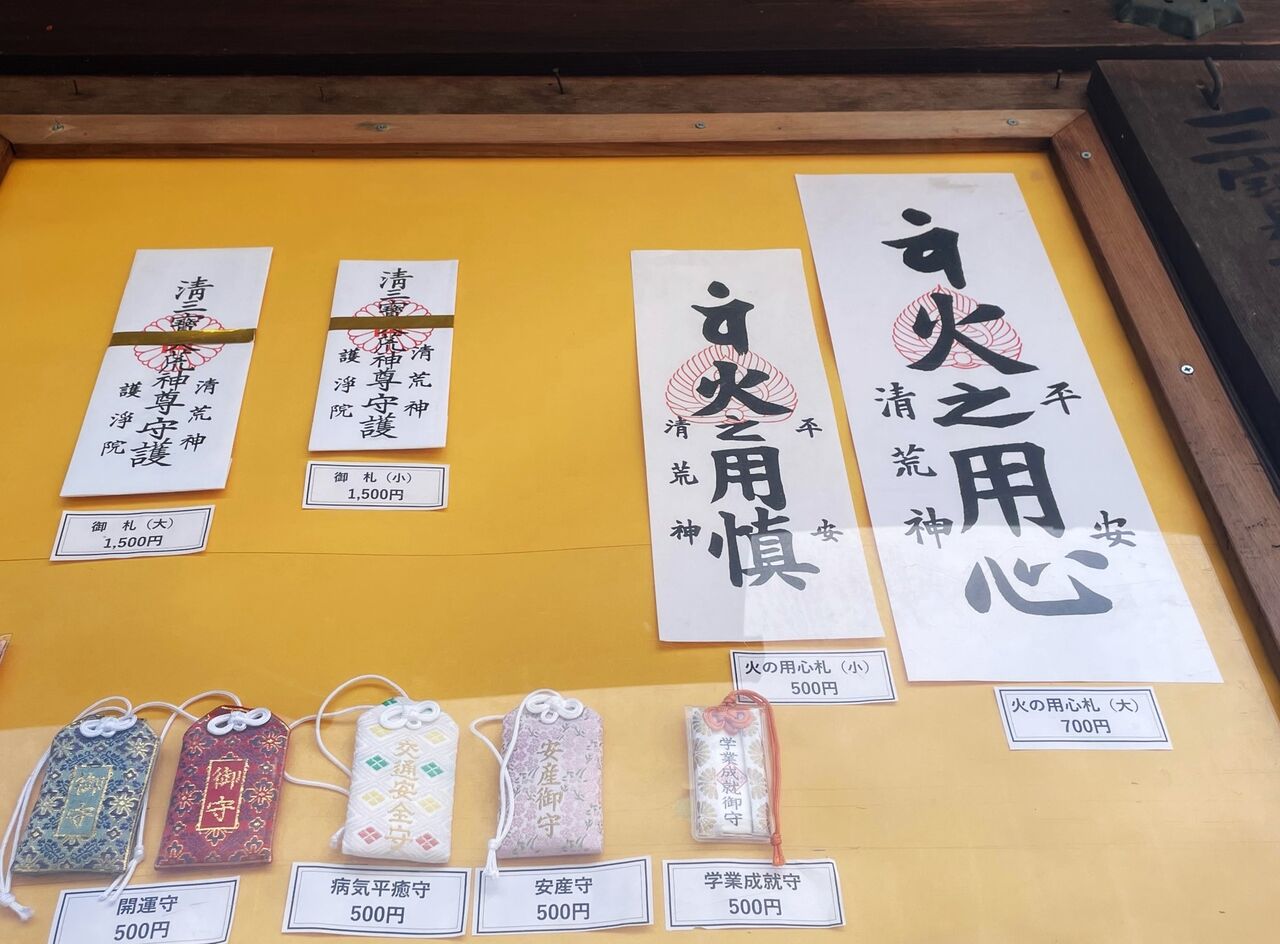 清三寶大荒神尊守護
清荒神
護淨院
御 札（大）
1,500円
清三寶大荒神尊守護
清荒神
護淨院
御 札（小）
1,500円
火之用慎
平安
清荒神
火の用心札（小）
500円
火之用心
平安
清荒神
火の用心札（大）
700円
三寳
御守
御守
開運守
500円
交通安全守
病気平癒守
500円
安産御守
安産守
500円
学業成就御守
学業成就守
500円